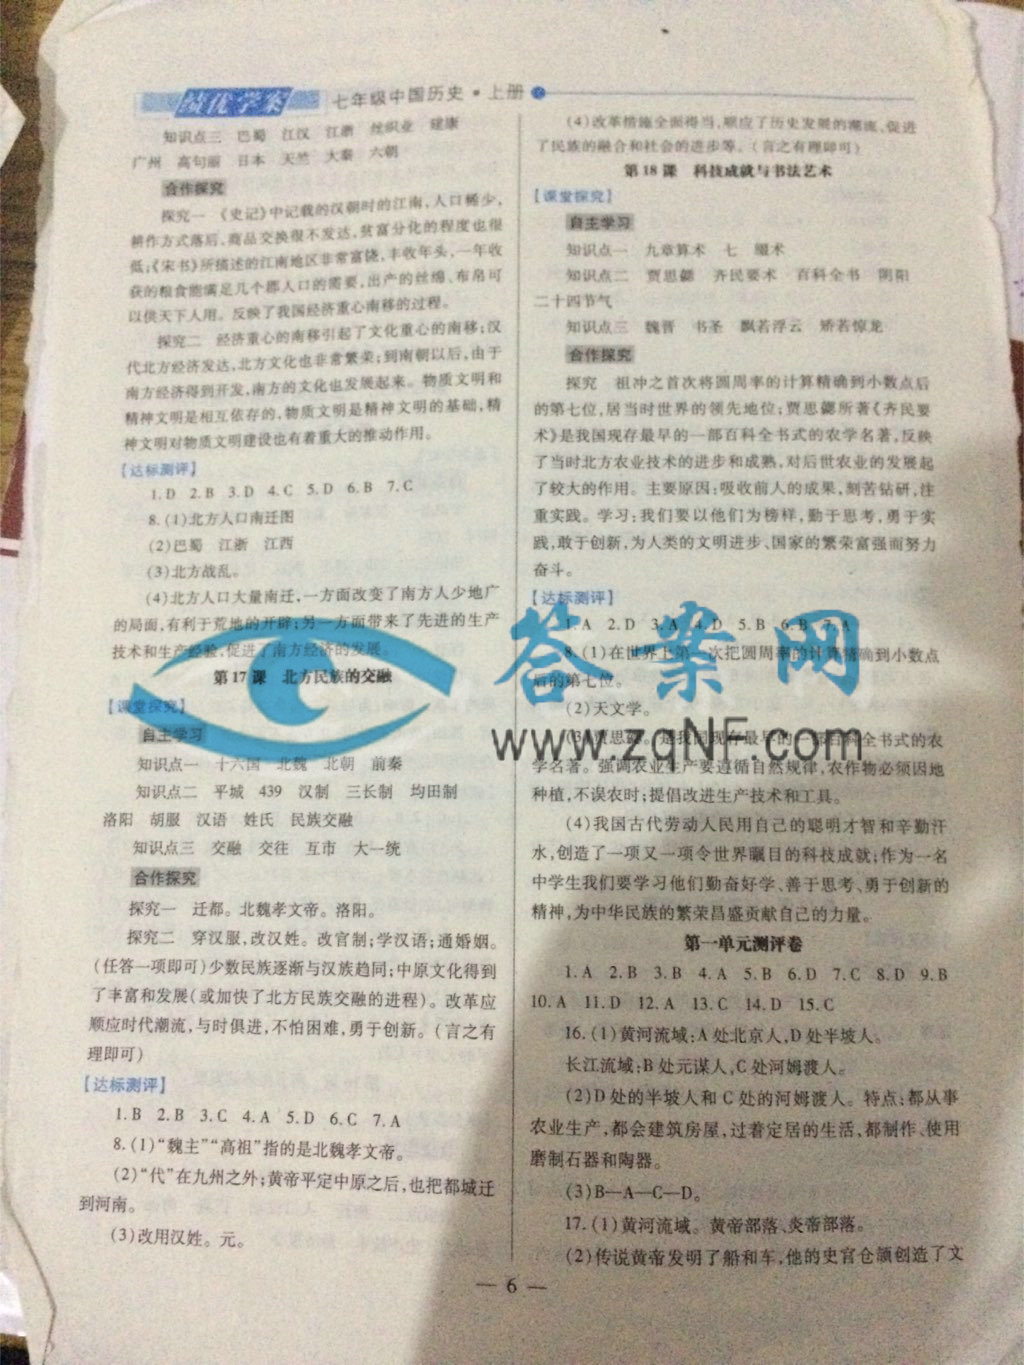 绩优学案 七年级中国历史·上册
知识点三 巴蜀 江汉 江浙 丝织业 建康
广州 高句丽 日本 天竺 大秦 六朝
合作探究
探究一 《史记》中记载的汉朝时的江南,人口稀少,
耕作方式落后,商品交换很不发达,贫富分化的程度也很
低;《宋书》所描述的江南地区非常富饶,丰收年头,一年收
获的粮食能满足几个郡人口的需要,出产的丝绵、布帛可
以供天下人用。反映了我国经济重心南移的过程。
探究二 经济重心的南移引起了文化重心的南移;汉
代北方经济发达,北方文化也非常繁荣;到南朝以后,由于
南方经济得到开发,南方的文化也发展起来。物质文明和
精神文明是相互依存的,物质文明是精神文明的基础,精
神文明对物质文明建设也有着重大的推动作用。
【达标测评】
1.D 2.B 3.D 4.C 5.D 6.B 7.C
8.(1)北方人口南迁图
(2)巴蜀 江浙 江西
(3)北方战乱。
(4)北方人口大量南迁,一方面改变了南方人少地广
的局面,有利于荒地的开辟;另一方面带来了先进的生产
技术和生产经验,促进了南方经济的发展。
第17课 北方民族的交融
【课堂探究】
自主学习
知识点一 十六国 北魏 北朝 前秦
知识点二 平城 439 汉制 三长制 均田制
洛阳 胡服 汉语 姓氏 民族交融
知识点三 交融 交往 互市 大一统
合作探究
探究一 迁都。北魏孝文帝。洛阳。
探究二 穿汉服,改汉姓。改官制;学汉语;通婚姻。
(任答一项即可)少数民族逐渐与汉族趋同;中原文化得到
了丰富和发展(或加快了北方民族交融的进程)。改革应
顺应时代潮流,与时俱进,不怕困难,勇于创新。(言之有
理即可)
【达标测评】
1.B 2.B 3.C 4.A 5.D 6.C 7.A
8.(1)“魏主”“高祖”指的是北魏孝文帝。
(2)“代”在九州之外;黄帝平定中原之后,也把都城迁
到河南。
(3)改用汉姓。元。
(4)改革措施全面得当,顺应了历史发展的潮流,促进
了民族的融合和社会的进步等。(言之有理即可)
第18课 科技成就与书法艺术
【课堂探究】
自主学习
知识点一 九章算术 七 缀术
知识点二 贾思勰 齐民要术 百科全书 阴阳
二十四节气
知识点三 魏晋 书圣 飘若浮云 矫若惊龙
合作探究
探究 祖冲之首次将圆周率的计算精确到小数点后
的第七位,居当时世界的领先地位;贾思勰所著《齐民要
术》是我国现存最早的一部百科全书式的农学名著,反映
了当时北方农业技术的进步和成熟,对后世农业的发展起
了较大的作用。主要原因:吸收前人的成果,刻苦钻研,注
重实践。学习:我们要以他们为榜样,勤于思考,勇于实
践,敢于创新,为人类的文明进步、国家的繁荣富强而努力
奋斗。
【达标测评】
1.A 2.D 3.A 4.D 5.B 6.B 7.A
8.(1)在世界上第一次把圆周率的计算精确到小数点
后的第七位。
(2)天文学。
(3)贾思勰。是我国现存最早的一部百科全书式的农
学名著。强调农业生产要遵循自然规律,农作物必须因地
种植,不误农时;提倡改进生产技术和工具。
(4)我国古代劳动人民用自己的聪明才智和辛勤汗
水,创造了一项又一项令世界瞩目的科技成就;作为一名
中学生我们要学习他们勤奋好学、善于思考、勇于创新的
精神,为中华民族的繁荣昌盛贡献自己的力量。
第一单元测评卷
1.A 2.B 3.B 4.A 5.B 6.D 7.C 8.D 9.B
10.A 11.D 12.A 13.C 14.D 15.C
16.(1)黄河流域:A处北京人,D处半坡人。
长江流域:B处元谋人,C处河姆渡人。
(2)D处的半坡人和C处的河姆渡人。特点:都从事
农业生产,都会建筑房屋,过着定居的生活,都制作、使用
磨制石器和陶器。
(3)B—A—C—D。
17.(1)黄河流域。黄帝部落、炎帝部落。
(2)传说黄帝发明了船和车,他的史官仓颉创造了文
— 6 —
答案网
www.zqNF.com